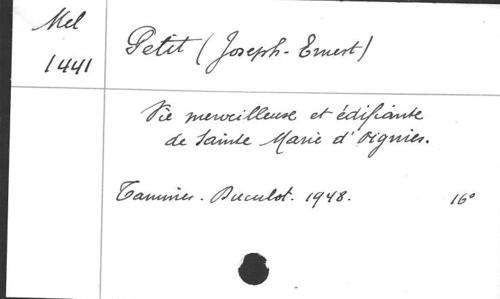 Mel
1441
Petit (Joseph-Ernest)
Vie merveilleuse et édifiante
de Sainte Marie d'Oignies.
Tamines. Duculot. 1948. 16°